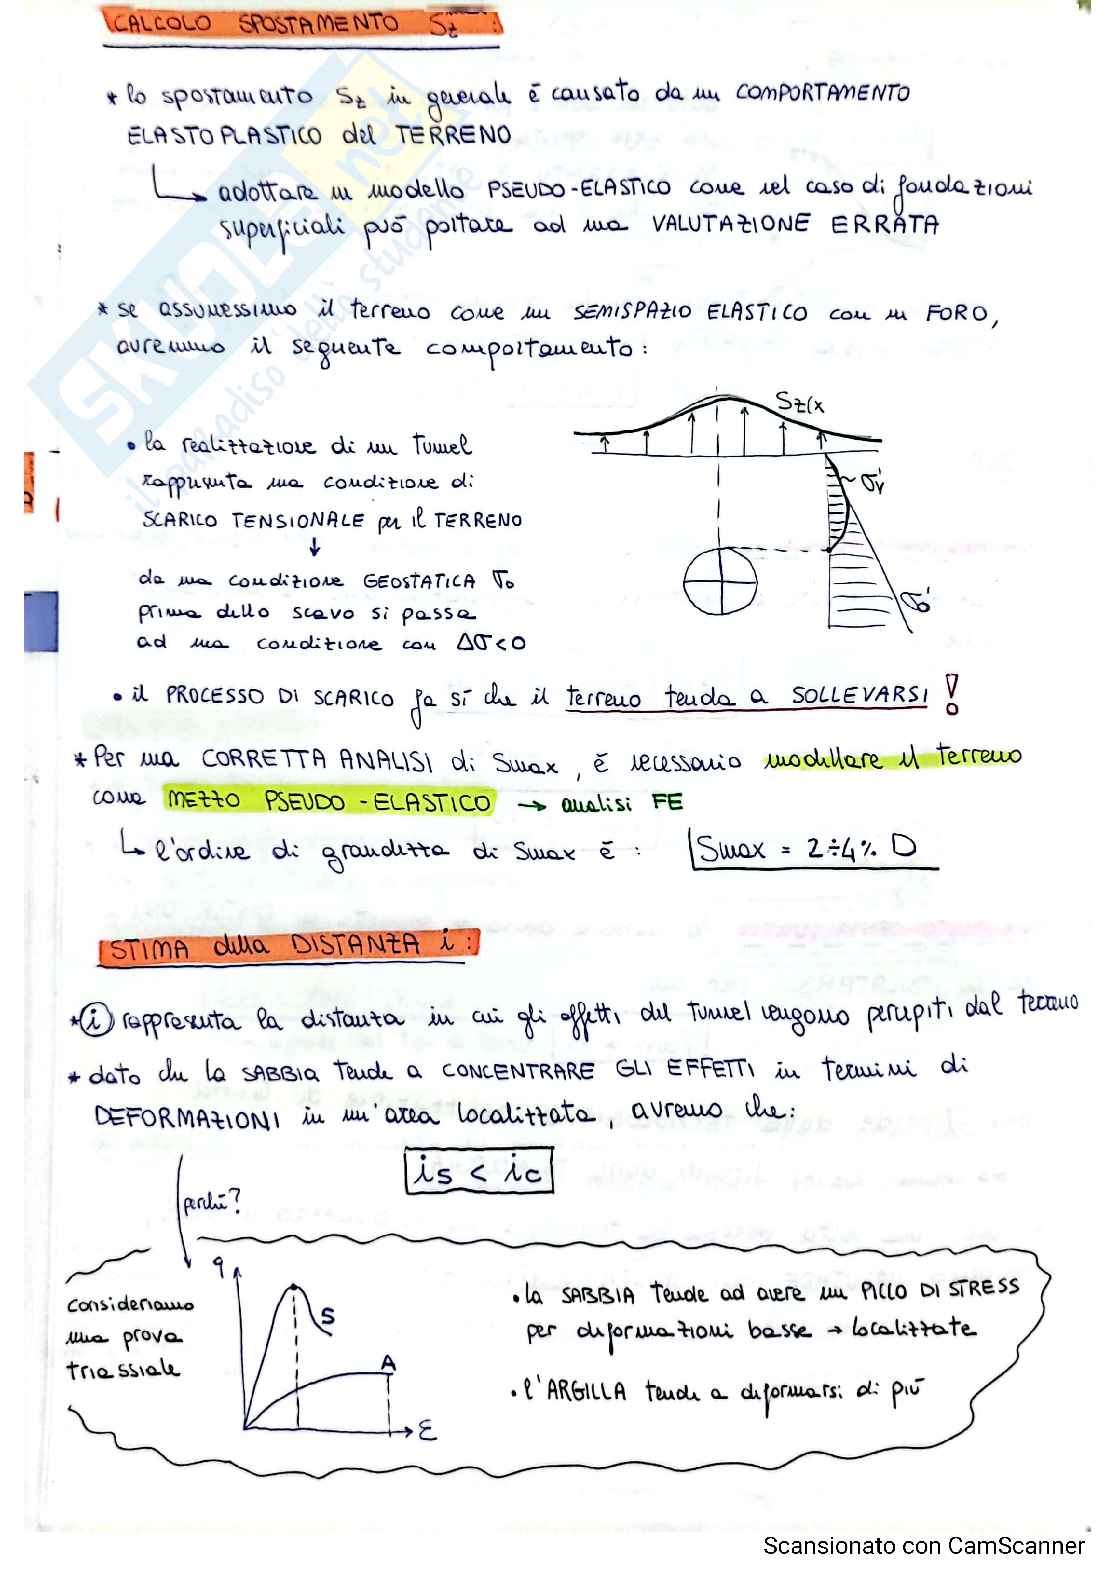 CALCOLO SPOSTAMENTO Sz :
* lo spostamento Sz in generale è causato da un COMPORTAMENTO
ELASTOPLASTICO del TERRENO
adottare un modello PSEUDO-ELASTICO come nel caso di fondazioni
superficiali può portare ad una VALUTAZIONE ERRATA
* se assumessimo il terreno come un SEMISPAZIO ELASTICO con un FORO,
avremmo il seguente comportamento :
Sz(x
• la realizzazione di un Tunnel
rappresenta una condizione di
SCARICO TENSIONALE per il TERRENO
↓
da una condizione GEOSTATICA σo
prima dello scavo si passa
ad una condizione con Δσ<0
σv'
σo'
• il PROCESSO DI SCARICO fa sì che il terreno tenda a SOLLEVARSI !
* Per una CORRETTA ANALISI di Smax, è necessario modellare il terreno
come MEZZO PSEUDO-ELASTICO → analisi FE
↳ l'ordine di grandezza di Smax è : Smax = 2÷4% D
STIMA della DISTANZA i :
* i rappresenta la distanza in cui gli effetti del Tunnel vengono percepiti dal terreno
* dato che la SABBIA tende a CONCENTRARE GLI EFFETTI in termini di
DEFORMAZIONI in un'area localizzata, avremo che:
is < ic
perchè?
consideriamo
una prova
triassiale
q
S
A
ε
• la SABBIA tende ad avere un PICCO DI STRESS
per deformazioni basse → localizzate
• l'ARGILLA tende a deformarsi di più
SKUOLA.net
il paradiso dello studente
Scansionato con CamScanner